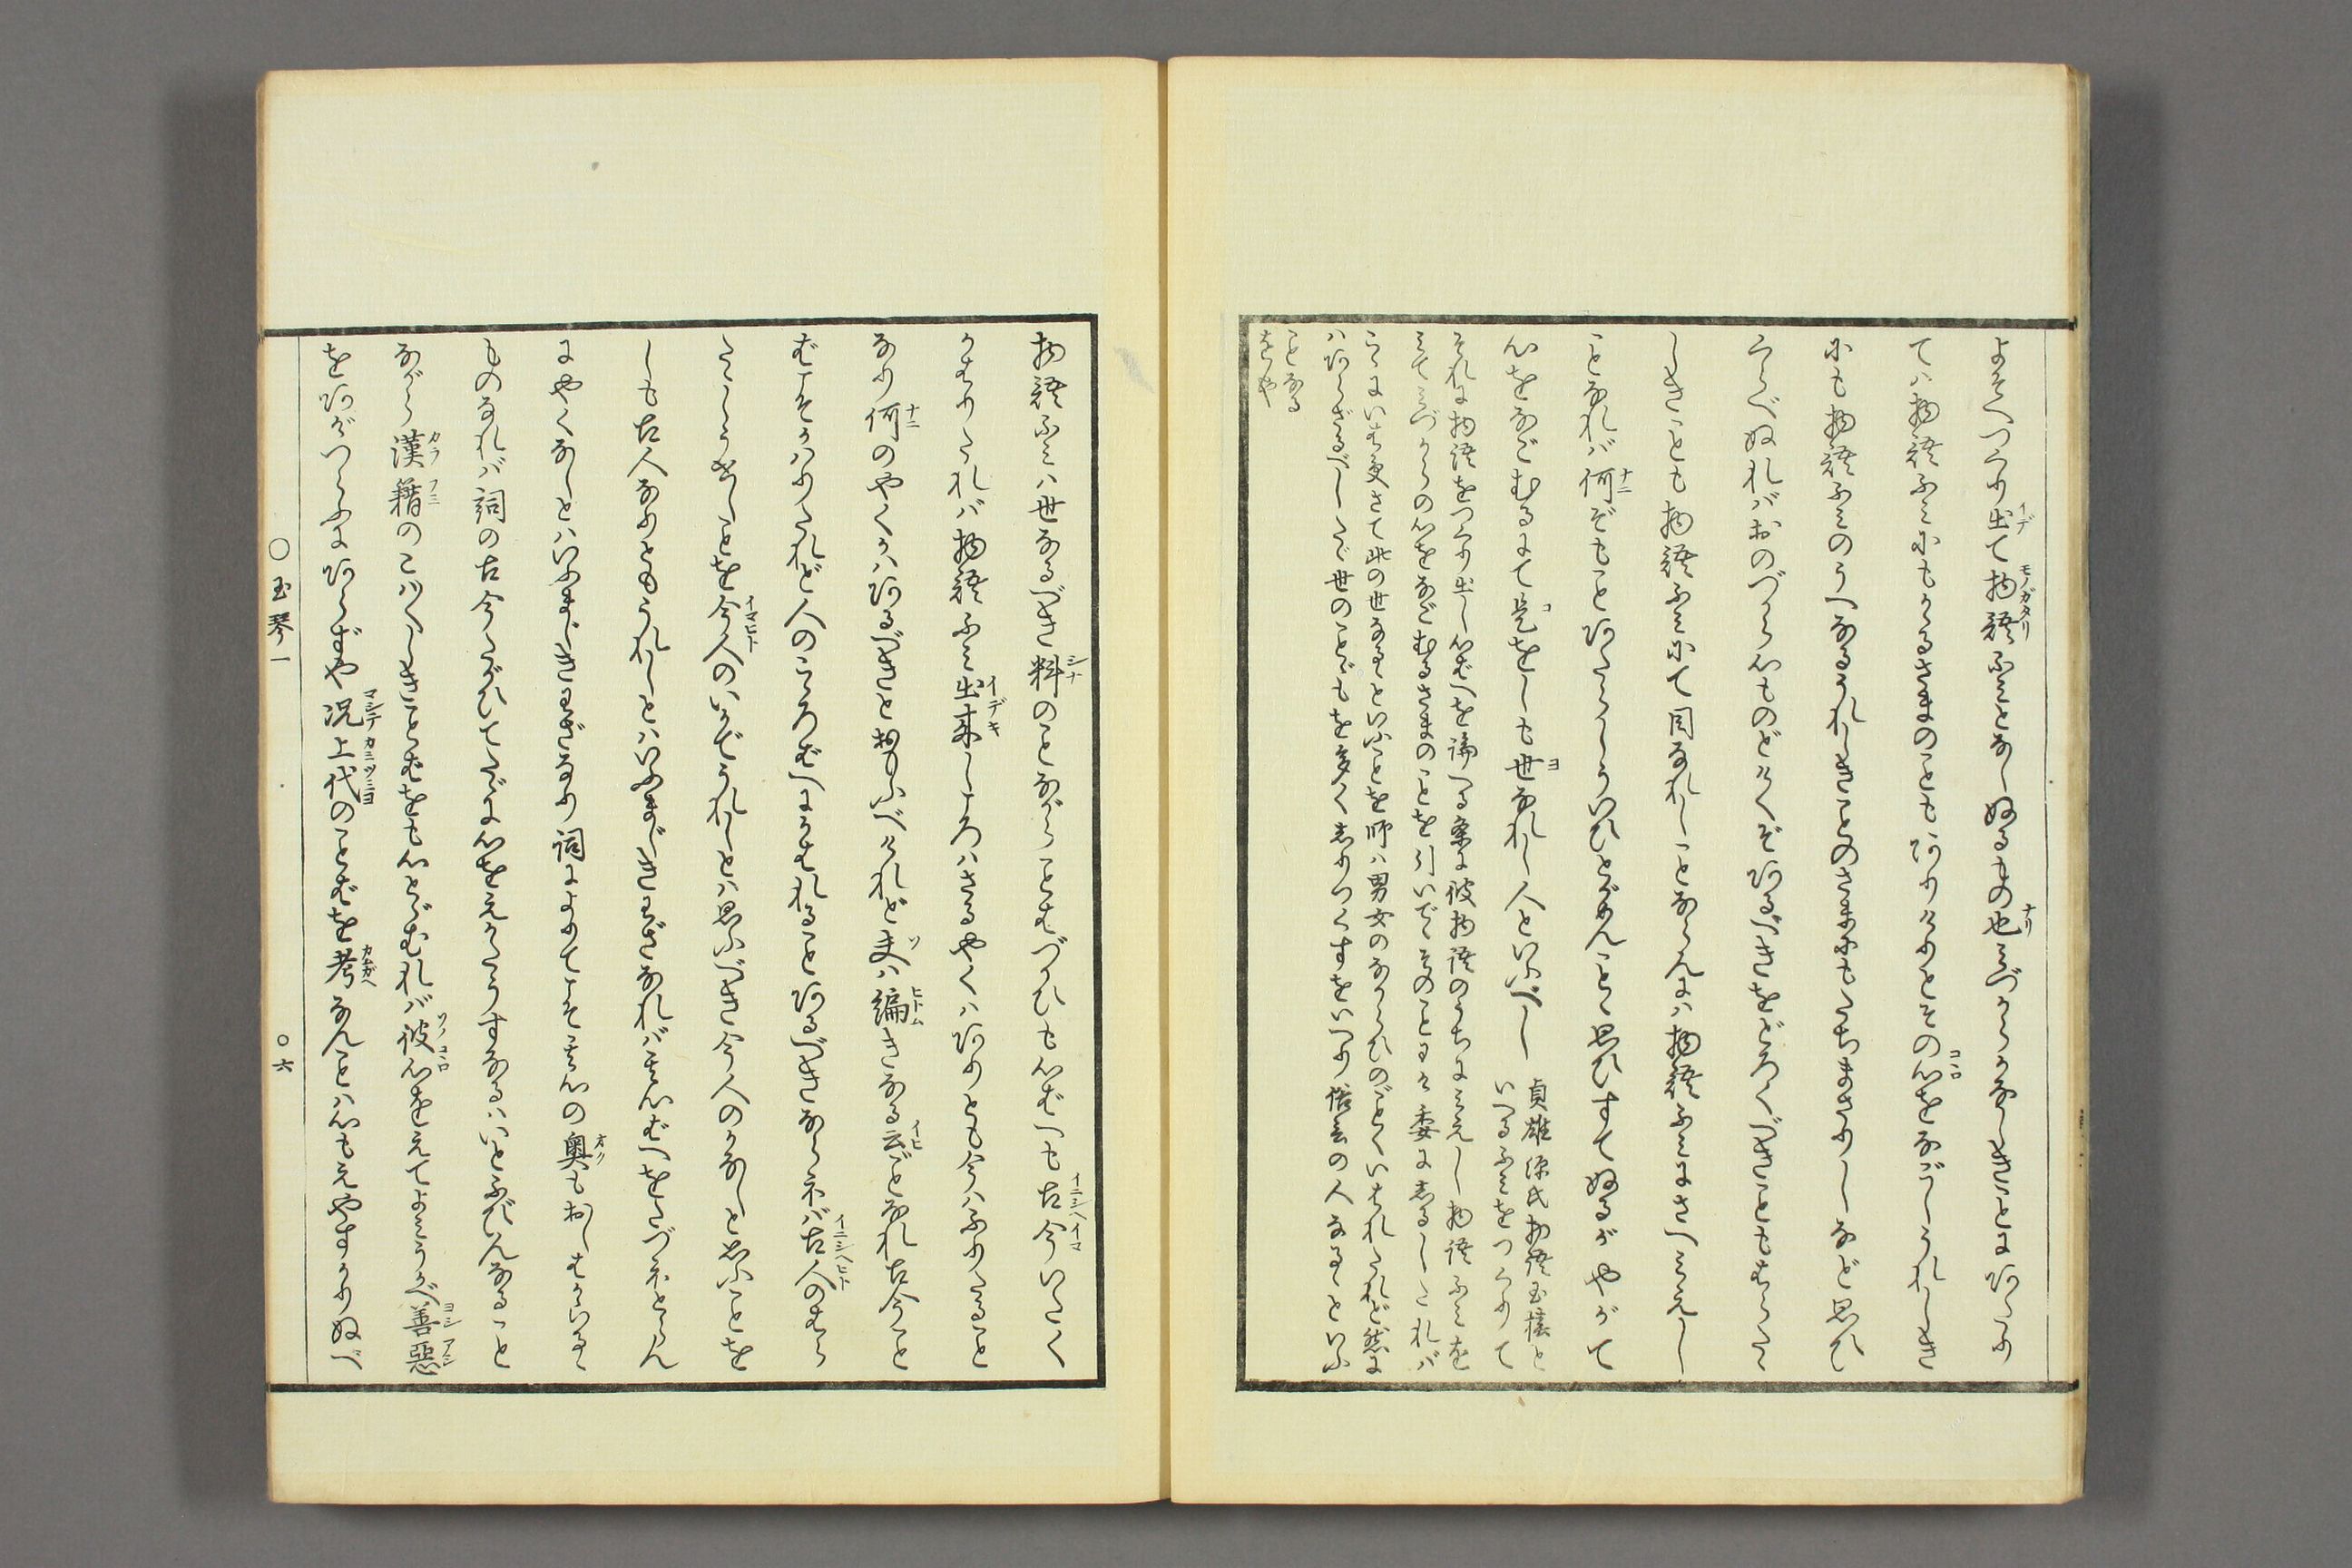 よそへつくり出て物語ふみとなしぬるもの也みづからかなしきことにあへり
ては物語ふみにもかゝるさまのこともありけりとその心をなごしうれしき
にも物語ふみのうへなるうれしきことのさまにもたちまさりしなど思ひ
くらべぬればおのづから心ものどけくぞあるべきをどろくべきこともはらた
しきことも物語ふみにて目なれしことならんには物語ふみにさへみえし
ことなれば何ぞもことあたらしういひとがめんことゝ思ひすてぬるがやがて
心をなごむるにて是をしも世なれし人といふべし
貞雄源氏物語玉櫛と
いへるふみをつくりて
それに物語をつくり出し心ばへを論へる条に彼物語のうちにみえし物語ふみを
みてみづからの心をなごむるさまのことを引いでゝそのことわけ委にしるしたれば
こゝにいはず更さて此の世なるといふことを師は男女のなからひのごとくいはれたれど然に
はあらざるべしたゞ世のことゞもを多くしりつくすをいへり俗言の人なるゝといふ
ことなる
をや
物語ふみは世なるべき料のことながらことばづかひも心ばへも古今いたく
かはりたれば物語ふみ出来しころはさるやくはありとも今はふりたること
なり何のやくかはあるべきと物もふべけれどそは編きなる云ごとなれ古今こと
ばこそかはりたれど人のこゝろばへにかはれることあるべきならネば古人のはら
たゝしうせしことを今人のいかでうれしとは思ふべき今人のかなしと思ふことを
しも古人なりともうれしとはいふまじきわざなればその心ばへをたづネとらん
にやくなしとはいふまじきわざなり詞によりてこそその心の奥もおしはからるゝ
ものなれば詞の古今たがひてたゞに心をえがたうするなるはいとふびんなること
ながら漢籍のこはくしきことばをも心とゞむれば彼心をえてよみうかべ善悪
をあげつらふにあらずや况上代のことばを考なんとは心もえやすかりぬべ
○玉琴一
○六